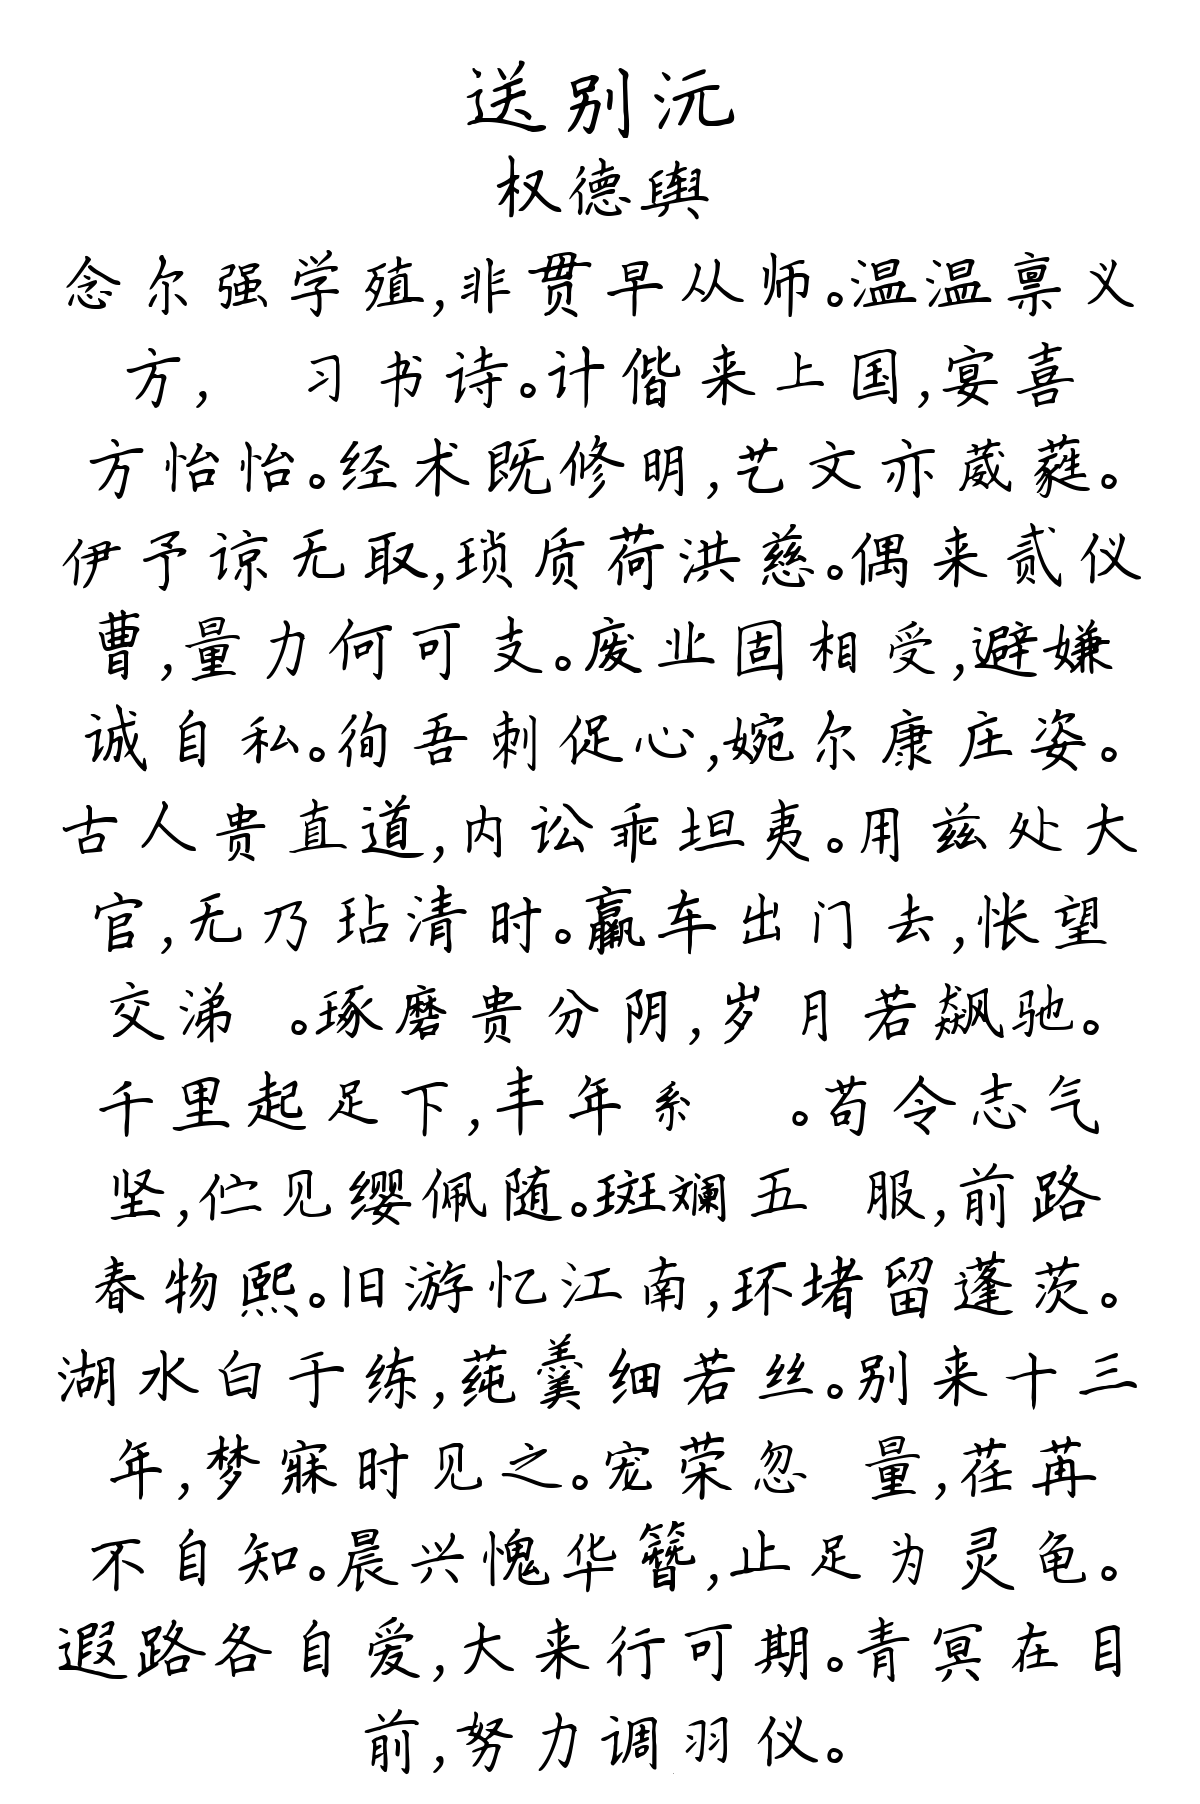 送别沅
权德舆
念尔强学殖,非贯早从师。温温禀义
方, 习书诗。计偕来上国,宴喜
方怡怡。经术既修明,艺文亦葳蕤。
伊予谅无取,琐质荷洪慈。偶来贰仪
曹,量力何可支。废业固相受,避嫌
诚自私。徇吾刺促心,婉尔康庄姿。
古人贵直道,内讼乖坦夷。用兹处大
官,无乃玷清时。羸车出门去,怅望
交涕 。琢磨贵分阴,岁月若飙驰。
千里起足下,丰年系 。苟令志气
坚,伫见缨佩随。斑斓五 服,前路
春物熙。旧游忆江南,环堵留蓬茨。
湖水白于练,莼羹细若丝。别来十三
年,梦寐时见之。宠荣忽 量,荏苒
不自知。晨兴愧华簪,止足为灵龟。
遐路各自爱,大来行可期。青冥在目
前,努力调羽仪。